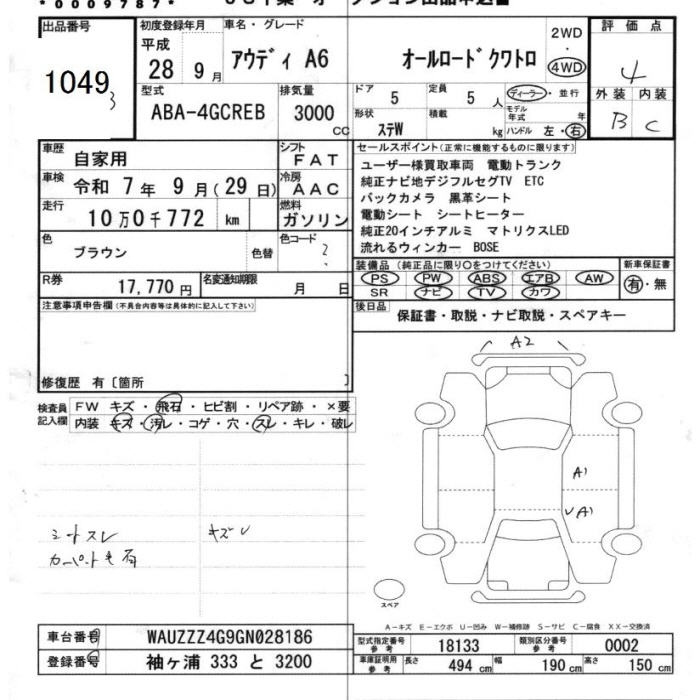 *0009787*
出品番号
1049
3
初度登録年月
平成
28 9月
車名・グレード
アウディ A6 オールロードクワトロ
2WD
・
4WD
評価点
4
外装 内装
B C
型式
ABA-4GCREB
排気量
3000
CC
ドア
5
定員
5人
形状
ステW
積載
kg
ディーラー・並行
モデル年式 年
ハンドル 左・右
車歴
自家用
シフト
FAT
車検
令和 7年 9月(29日)
冷房
AAC
走行
10万0千772 km
燃料
ガソリン
色
ブラウン
色替
色コード
R券
17,770円
名変通知期限
月 日
セールスポイント(正常に機能するものに限ります)
ユーザー様買取車両 電動トランク
純正ナビ地デジフルセグTV ETC
バックカメラ 黒革シート
電動シート シートヒーター
純正20インチアルミ マトリクスLED
流れるウィンカー BOSE
装備品(純正品に限り○をつけてください)
PS PW ABS エアB AW
SR ナビ TV カワ
新車保証書
有・無
後日品
保証書・取説・ナビ取説・スペアキー
注意事項申告欄(不具合内容等は具体的に記入して下さい)
修復歴 有〔箇所 〕
検査員記入欄
FW キズ・飛石・ヒビ割・リペア跡・×要
内装 キズ・汚レ・コゲ・穴・スレ・キレ・破レ
シートスレ
キズ
A2
A1
A1
スペア
A−キズ E−エクボ U−凹み W−補修跡 S−サビ C−腐食 XX−交換済
車台番号
WAUZZZ4G9GN028186
登録番号
袖ヶ浦 333 と 3200
型式指定番号
参考
18133
類別区分番号
参考
0002
車庫証明用
参考
長さ 494 cm
幅 190 cm
高さ 150 cm